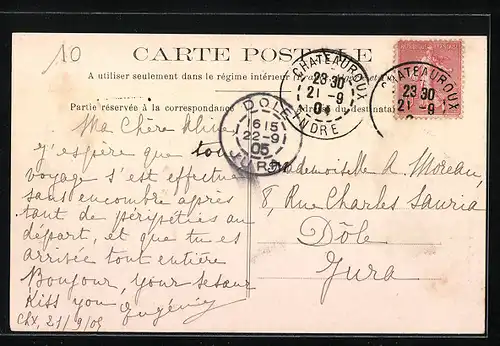 10
CARTE POSTALE
A utiliser seulement dans le régime intérieur
Partie réservée à la correspondance
Adresse du destinataire
CHATEAUROUX
23 30
21 - 9
INDRE
CHATEAUROUX
23 30
21 - 9
DOLE
6 15
22 - 9
05
JURA
Ma Chère
j'espère que ton
voyage s'est effectué
sans encombre après
tant de péripéties au
départ, et que tu es
arrivée tout entière
Bonjour, your
Kiss you Eugénie
Chx, 21/9/05
Mademoiselle A. Moreau,
8, Rue Charles Sauria
Dôle
Jura